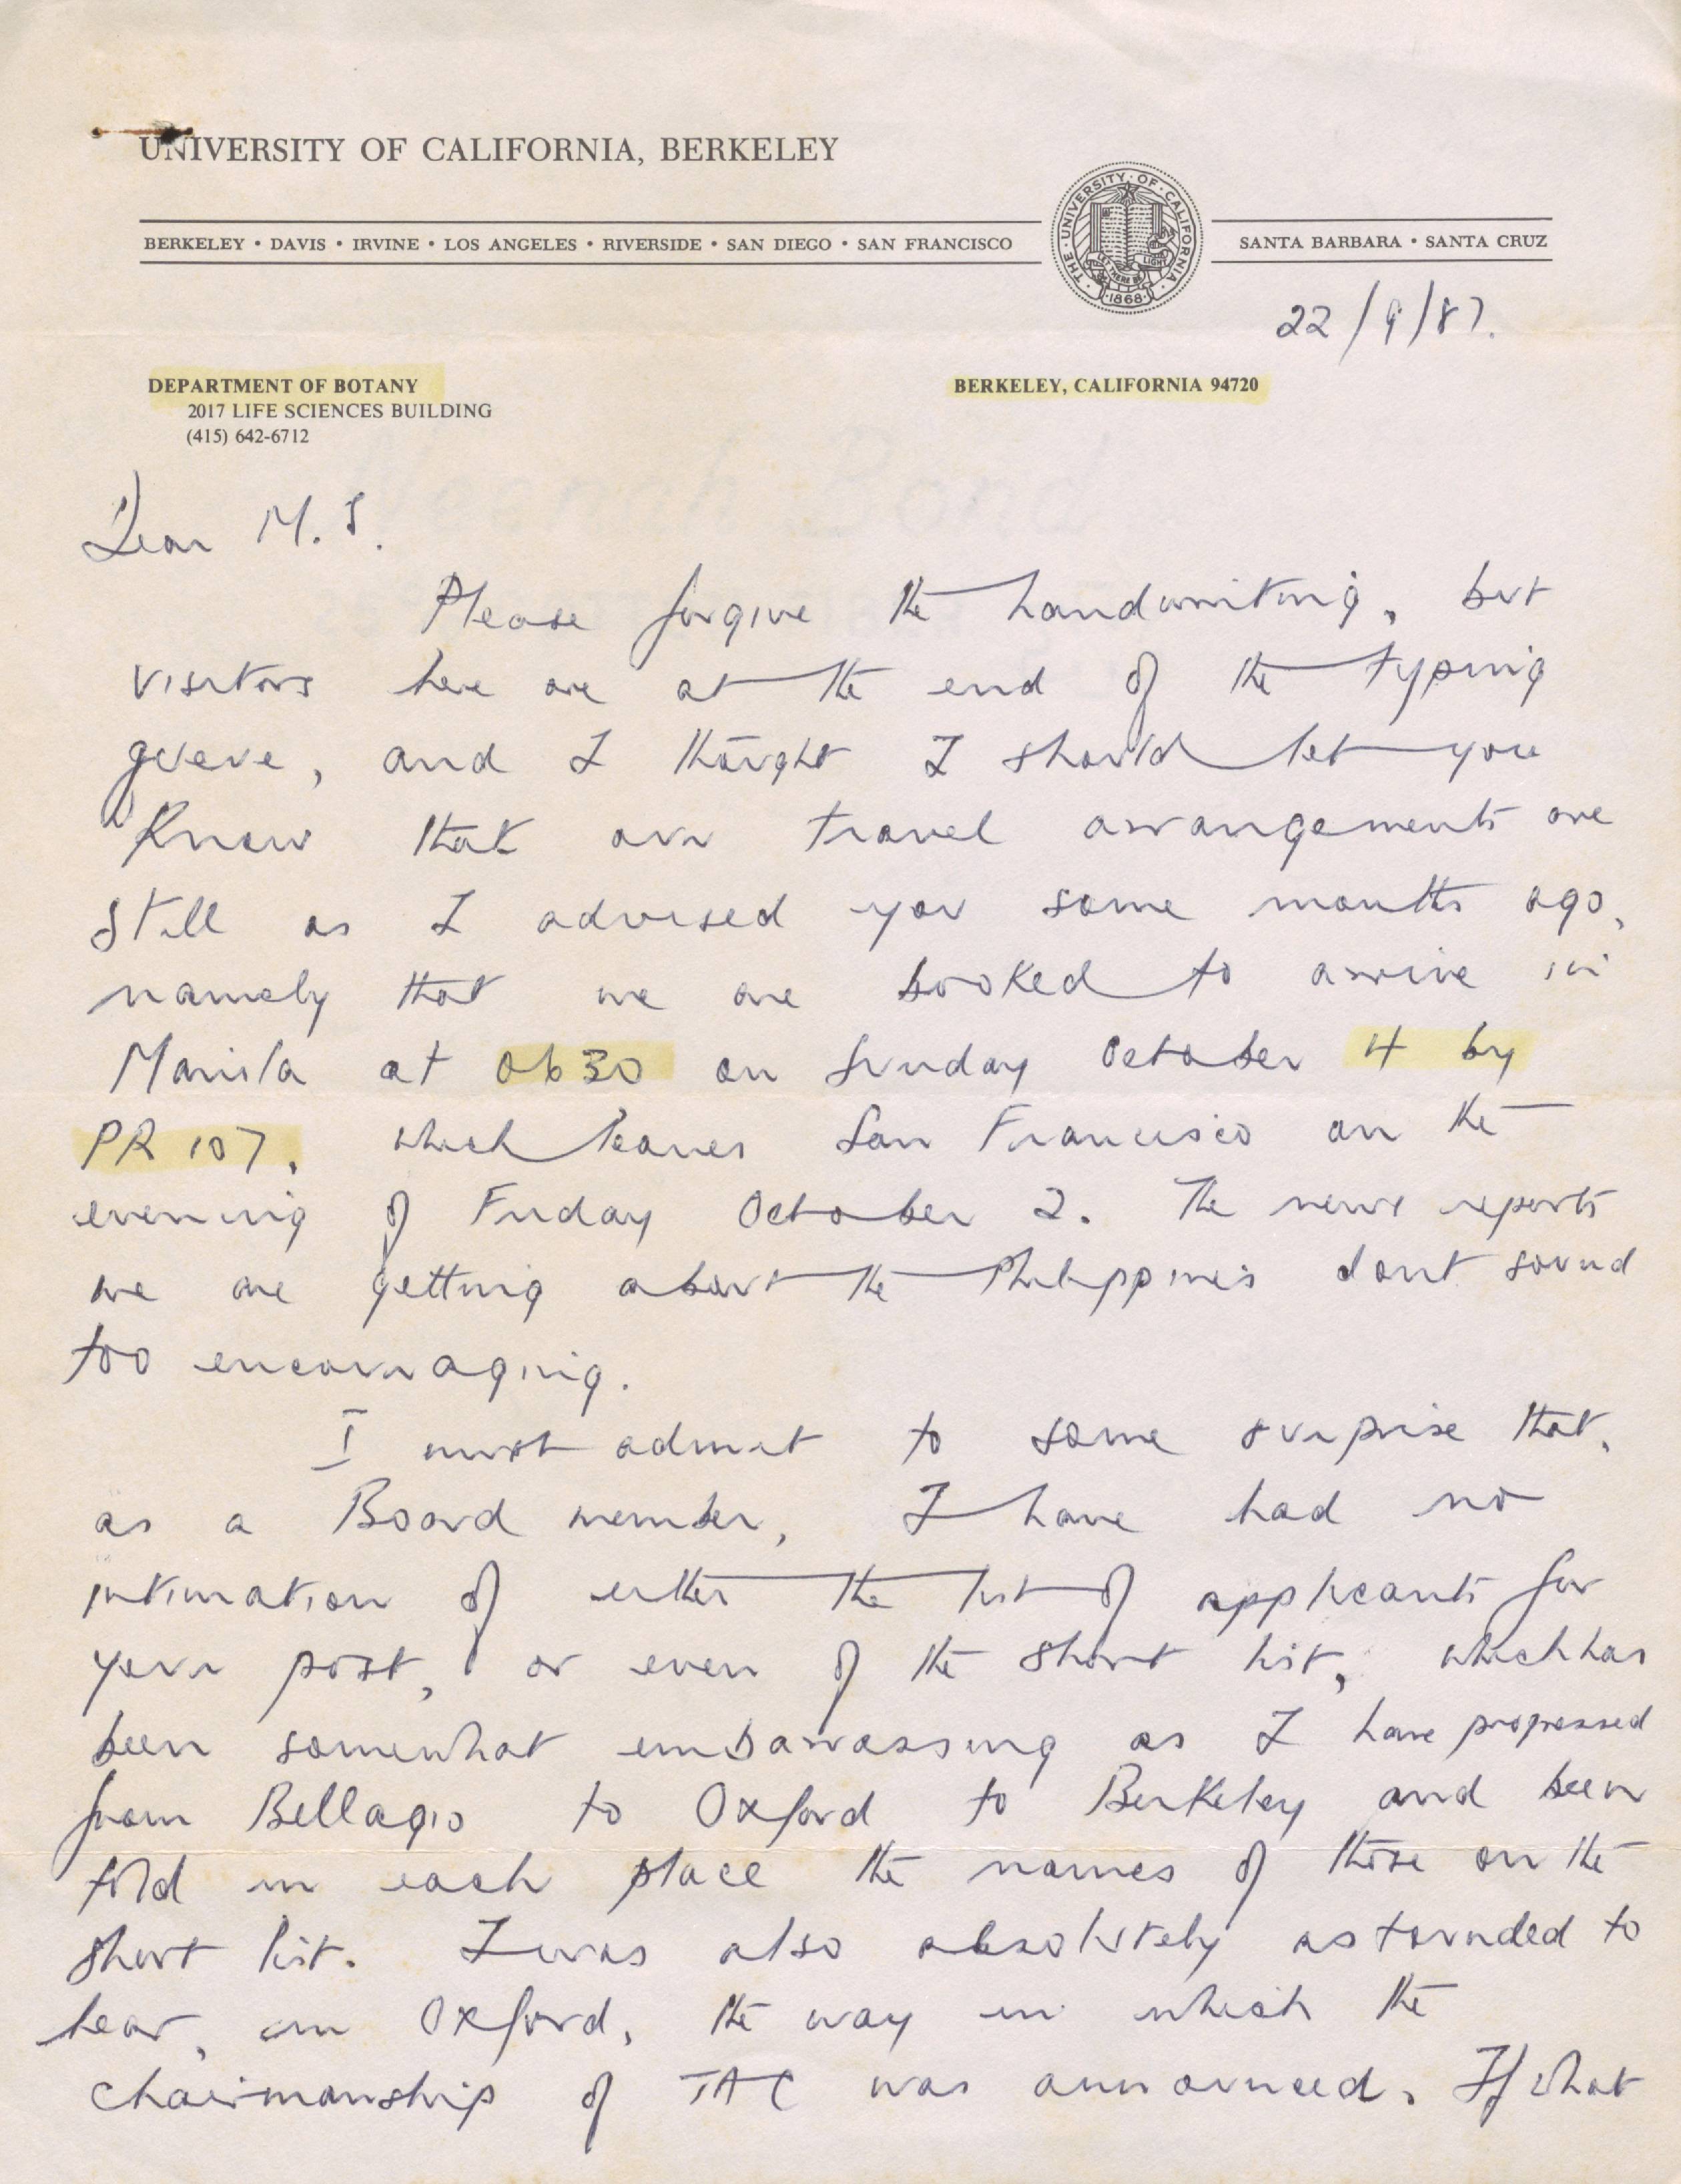 UNIVERSITY OF CALIFORNIA, BERKELEY
BERKELEY • DAVIS • IRVINE • LOS ANGELES • RIVERSIDE • SAN DIEGO • SAN FRANCISCO
SANTA BARBARA • SANTA CRUZ
THE • UNIVERSITY • OF • CALIFORNIA •
LET THERE BE LIGHT
• 1868 •
22/9/87.
DEPARTMENT OF BOTANY
2017 LIFE SCIENCES BUILDING
(415) 642-6712
BERKELEY, CALIFORNIA 94720
Dear M. S.
Please forgive the handwriting, but
visitors here are at the end of the typing
queue, and I thought I should let you
know that our travel arrangements are
still as I advised you some months ago,
namely that we are booked to arrive in
Manila at 0630 on Sunday October 4 by
PR 107, which leaves San Francisco on the
evening of Friday October 2. The news reports
we are getting about the Philippines dont sound
too encouraging.
I must admit to some surprise that,
as a Board member, I have had no
intimation of either the list of applicants for
your post, or even of the short list, which has
been somewhat embarrassing as I have progressed
from Bellagio to Oxford to Berkeley and been
told in each place the names of those on the
short list. I was also absolutely astounded to
hear, in Oxford, the way in which the
chairmanship of TAC was announced. If what